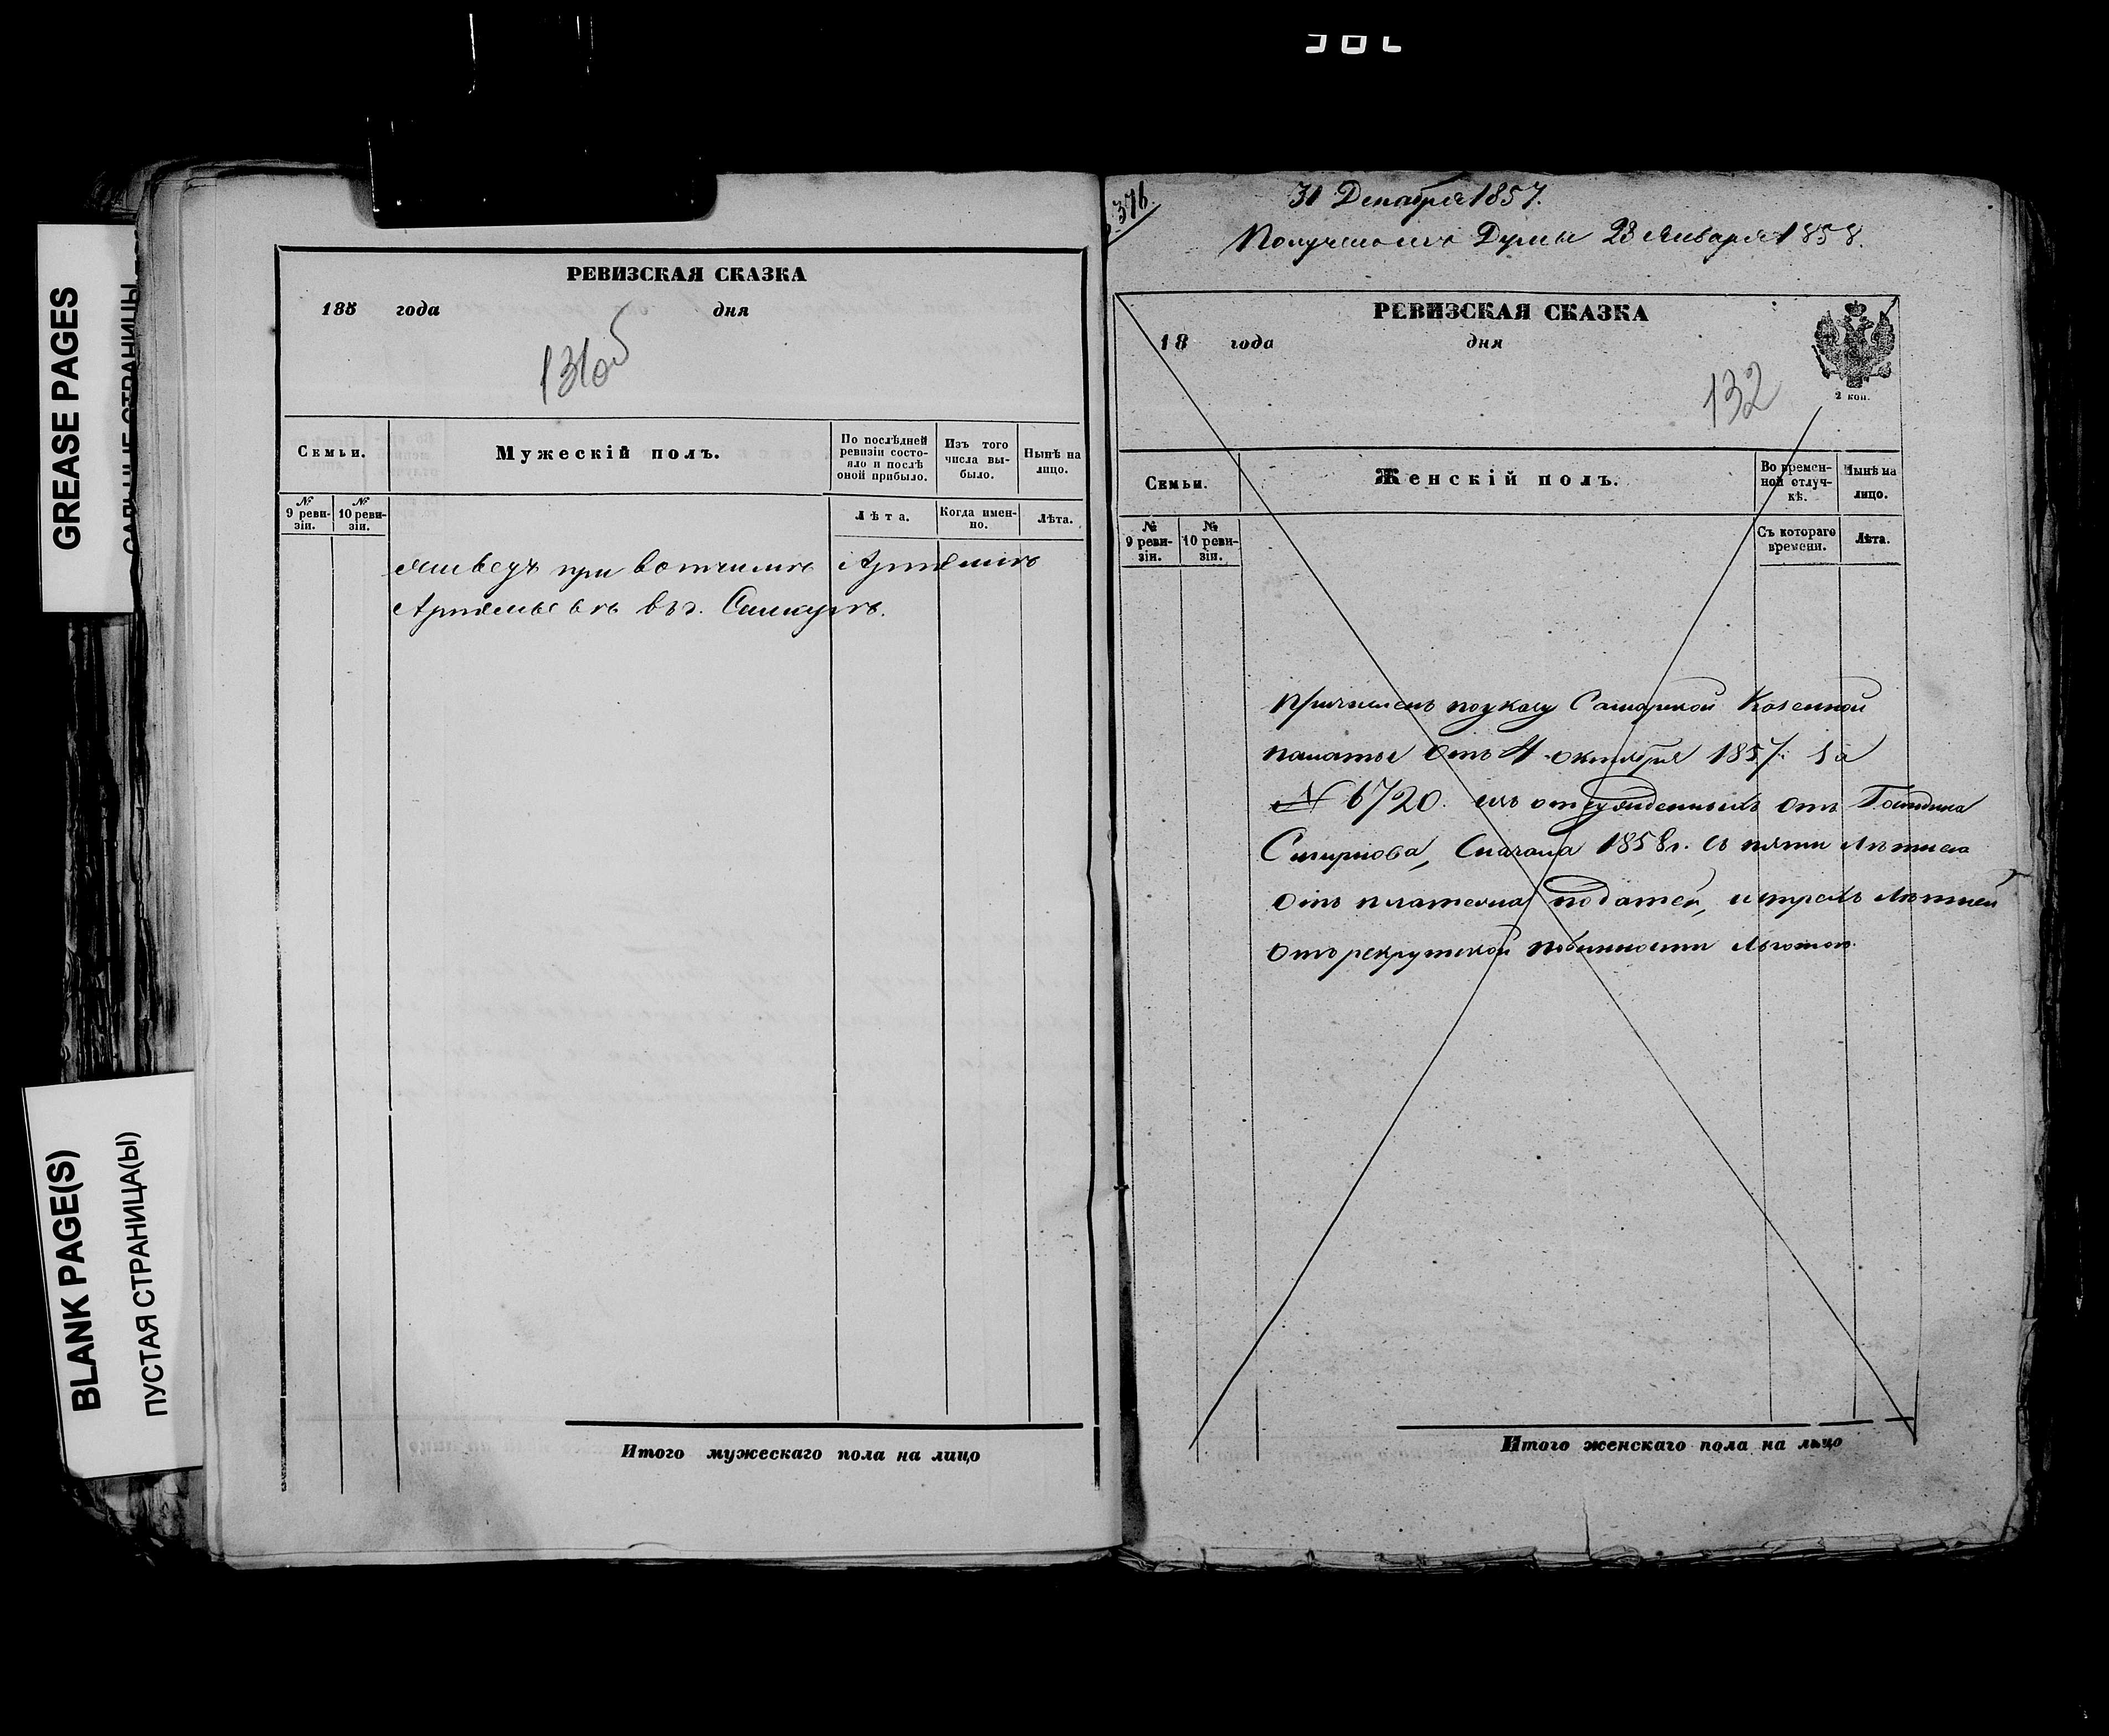 GREASE PAGES
САЛЬНЫЕ СТРАНИЦЫ
BLANK PAGE(S)
ПУСТАЯ СТРАНИЦА(Ы)
РЕВИЗСКАЯ СКАЗКА
185 года дня
131об
Семьи.
Мужескій полъ.
По послѣдней ревизіи состо-
яло и послѣ оной прибыло.
Изъ того числа вы-
было.
Нынѣ на лицо.
№ 9 реви-
зіи.
№ 10 реви-
зіи.
Лѣта.
Когда имен-
но.
Лѣта.
живетъ при вотчимѣ Артемиѣ
Артемьевѣ въ г. Самарѣ.
Итого мужескаго пола на лицо
376.
31 Декабря 1857.
Получено изъ Думы 23 Января 1858.
РЕВИЗСКАЯ СКАЗКА
18 года дня
132
2 коп.
Семьи.
Женскій полъ.
Во времен-
ной отлуч-
кѣ.
Нынѣ на лицо.
№ 9 реви-
зіи.
№ 10 реви-
зіи.
Съ котораго времени.
Лѣта.
Причисленъ по указу Самарской Казенной
палаты отъ 4 октября 1857. за
№ 6720. изъ отсужденныхъ отъ
Смирнова, Сначала 1858 г. съ пяти лѣтнею
отъ платежа податей, и трехъ лѣтней
отъ рекрутской повинности льготою.
Итого женскаго пола на лицо